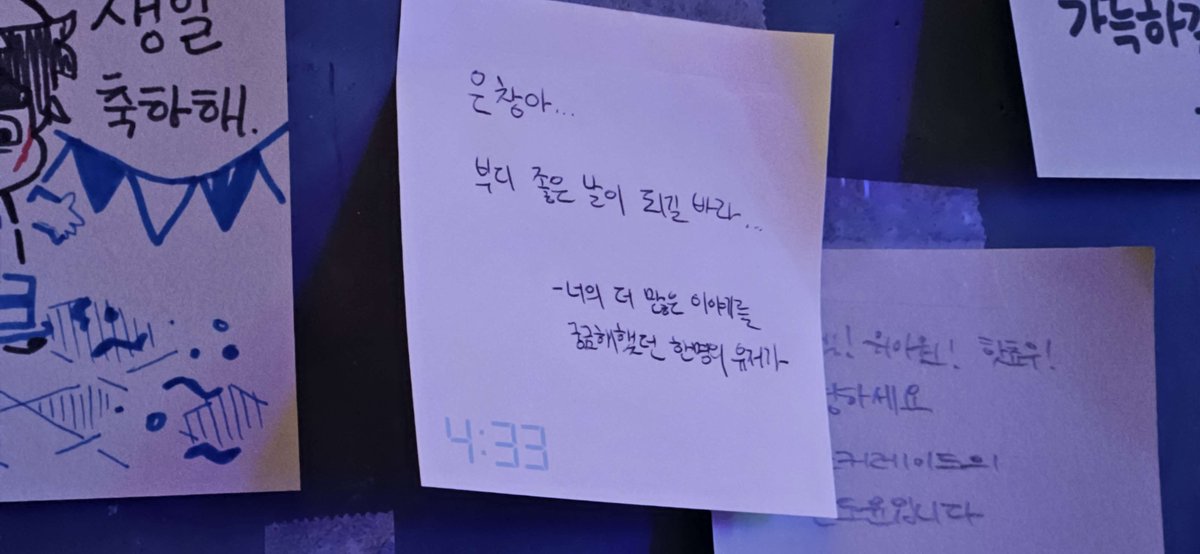 생일
축하해.
은창아...
부디 좋은 날이 되길 바라...
-너의 더 많은 이야기를
궁금해했던 한명의 유저가-
4:33
가득하길
하세요
커레이드의
도윤입니다